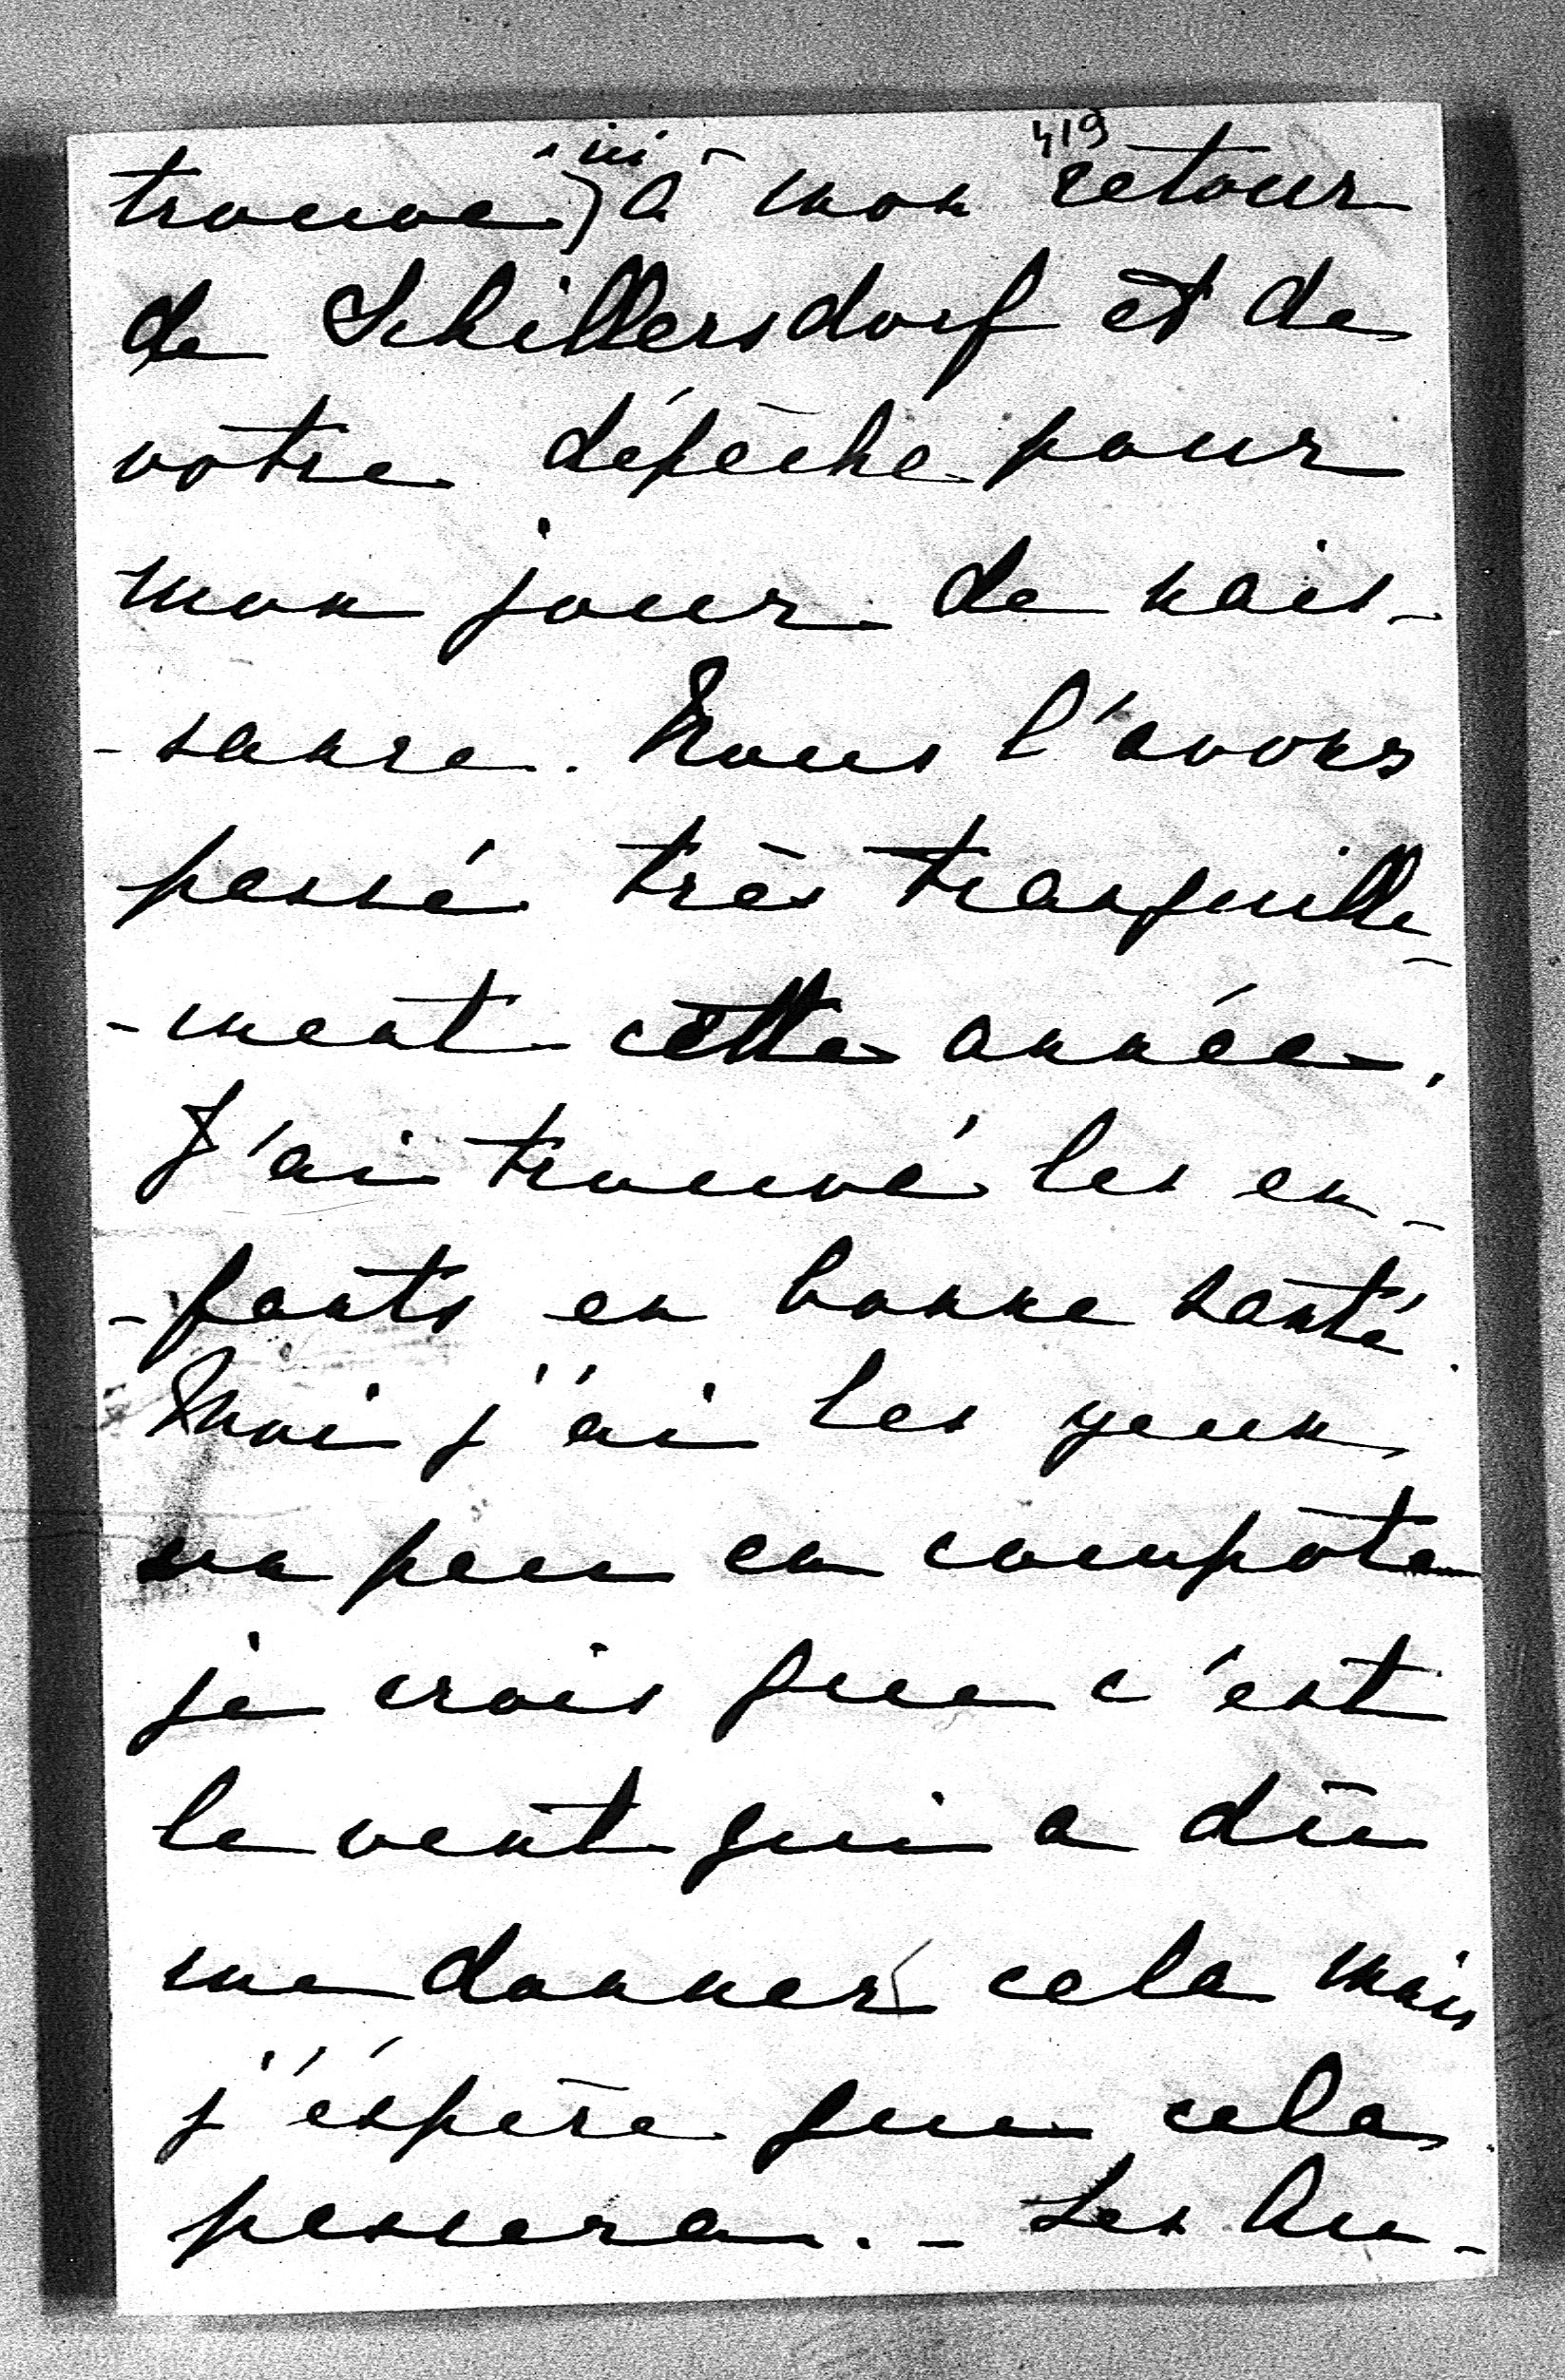 419
trouve ici à mon retour
de Schillersdorf et de
votre dépêche pour
mon jour de nais-
-sance. Nous l'avons
passé très tranquille-
-ment cette année.
J'ai trouvé les en-
-fants en bonne santé.
Moi j'ai les yeux
un peu en compote
je crois que c'est
le vent qui a dû
me donner cela mais
j'éspère que cela
passera. - Les Au-